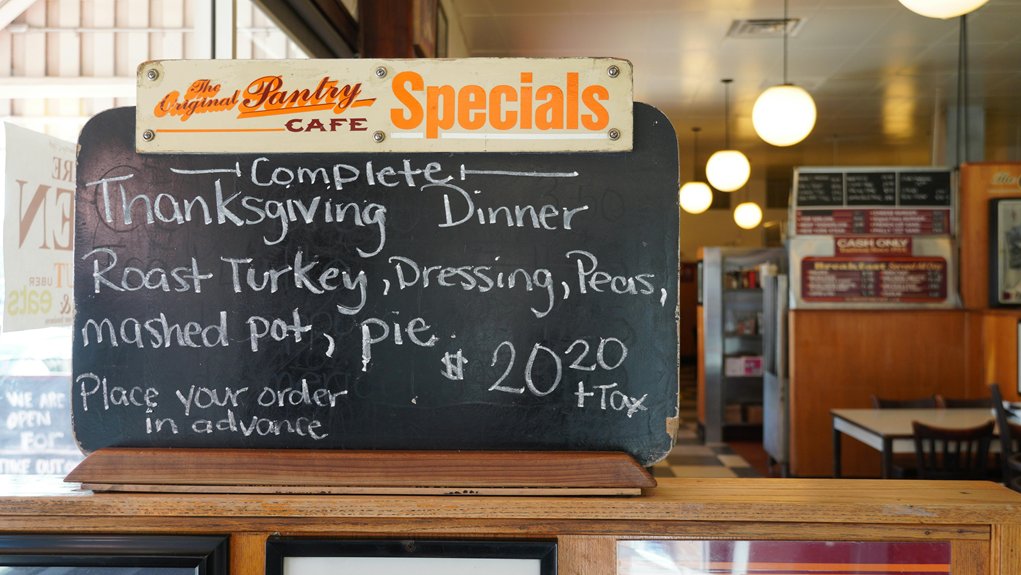 The
Original Pantry
CAFE
Specials
Complete
Thanksgiving Dinner
Roast Turkey, Dressing, Peas,
mashed pot, pie.
$ 20 20
+ Tax
Place your order
in advance
UBER
eats
&
WE ARE
OPEN
FOR
TAKE OUT
CASH ONLY
Breakfast Served All Day